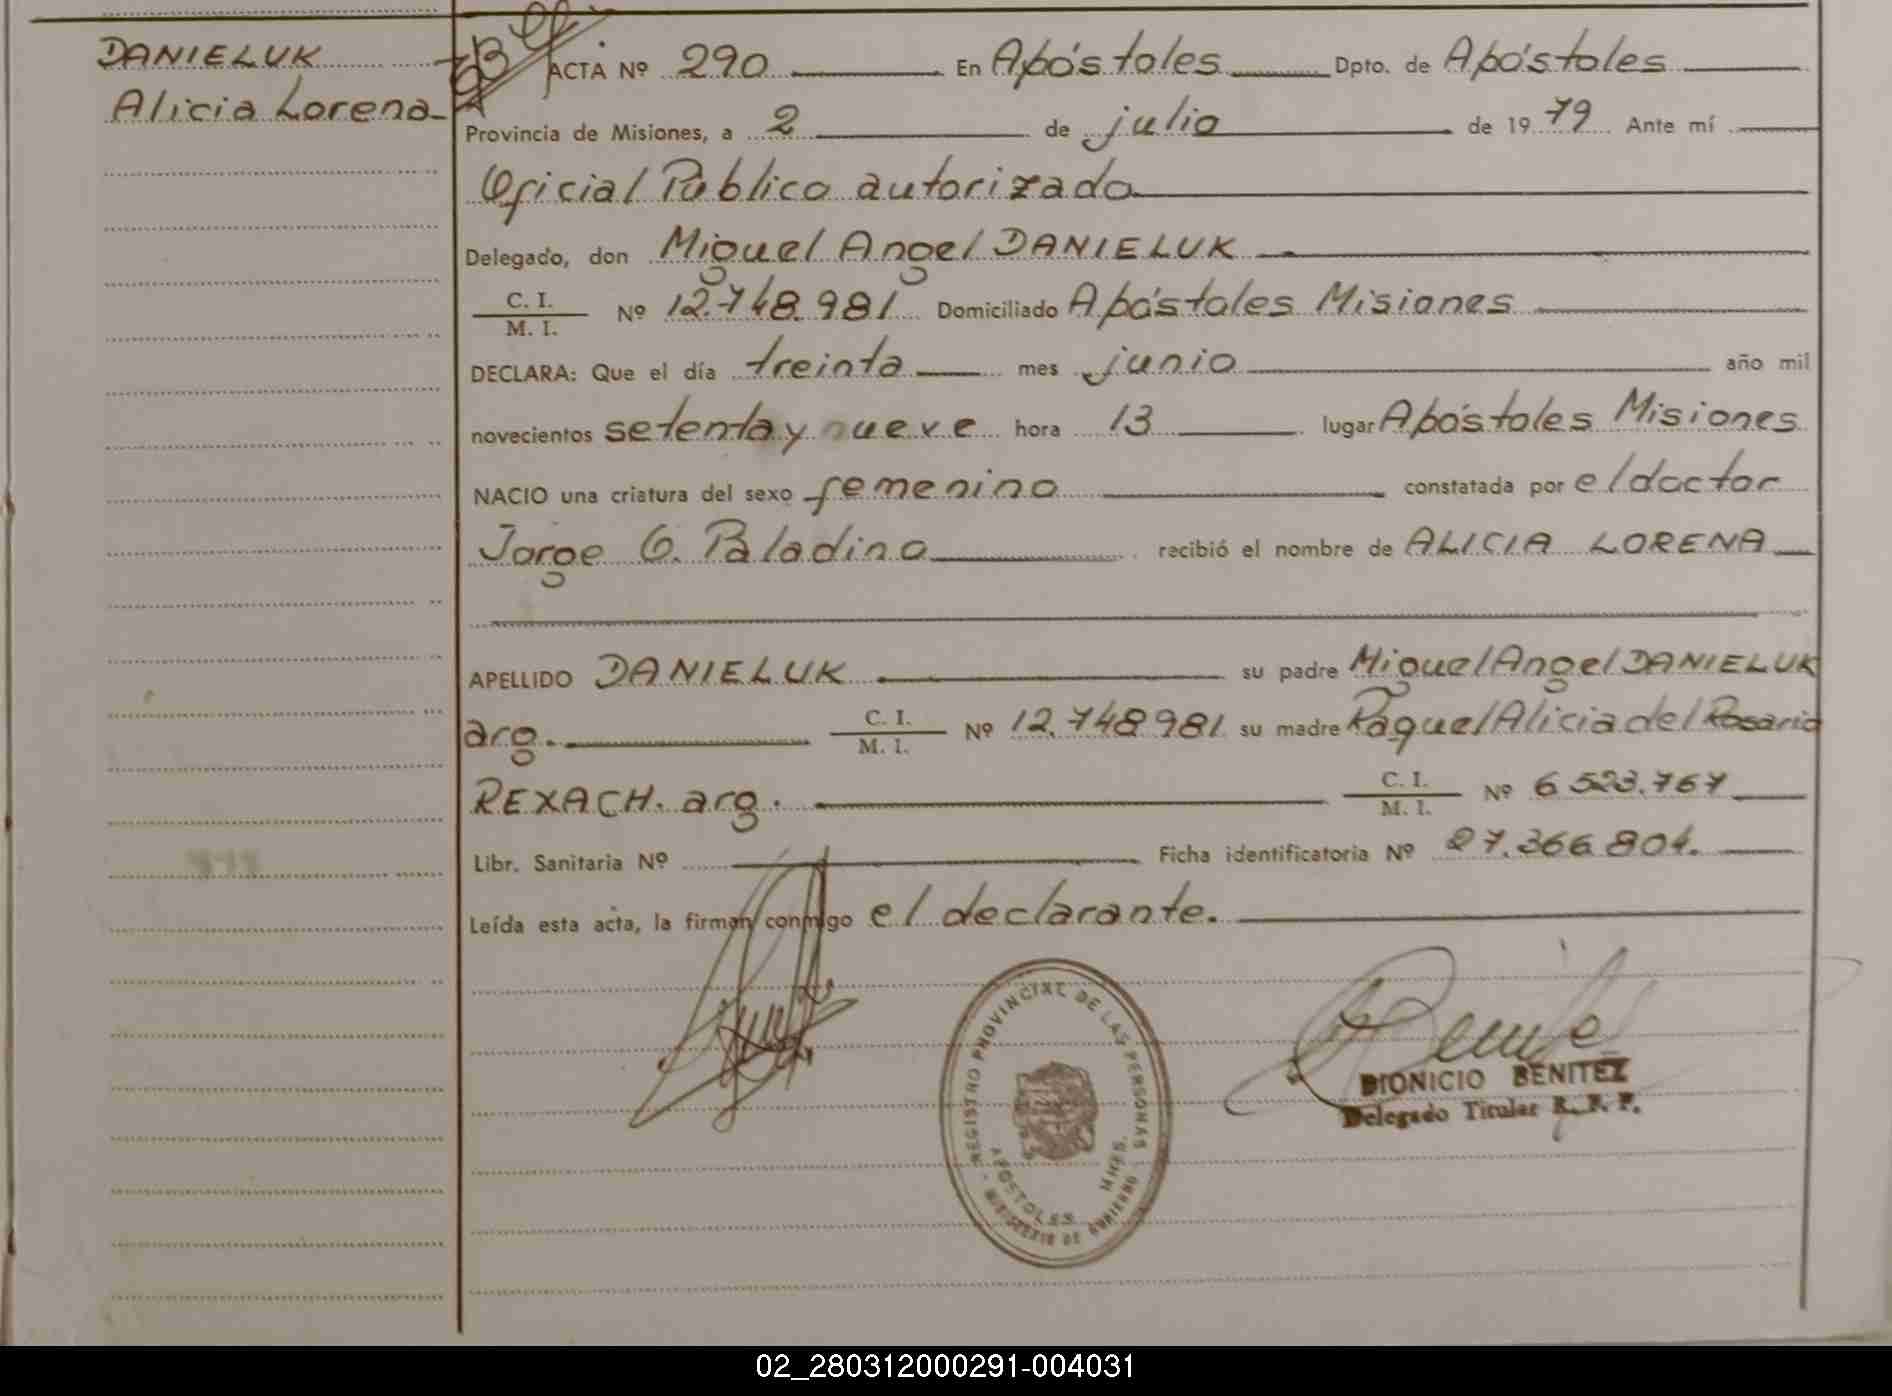 DANIELUK
Alicia Lorena
ACTA Nº 290 En Apóstoles Dpto. de Apóstoles
Provincia de Misiones, a 2 de julio de 19 79 Ante mí
Oficial Público autorizado
Delegado, don Miguel Angel DANIELUK
C. I.
M. I. Nº 12.748.981 Domiciliado Apóstoles Misiones
DECLARA: Que el día treinta mes junio año mil
novecientos setenta y nueve hora 13 lugar Apóstoles Misiones
NACIO una criatura del sexo femenino constatada por el doctor
Jorge O. Paladino recibió el nombre de ALICIA LORENA
APELLIDO DANIELUK su padre Miguel Angel DANIELUK
arg. C. I.
M. I. Nº 12.748981 su madre Raquel Alicia del Rosario
REXACH. arg. C. I.
M. I. Nº 6523.767
Libr. Sanitaria Nº Ficha identificatoria Nº 27.366.804.
Leída esta acta, la firman conmigo el declarante.
REGISTRO PROVINCIAL DE LAS PERSONAS
MINISTERIO DE GOBIERNO
APOSTOLES MNES.
DIONICIO BENITEZ
Delegado Titular R. P. P.
02_280312000291-004031